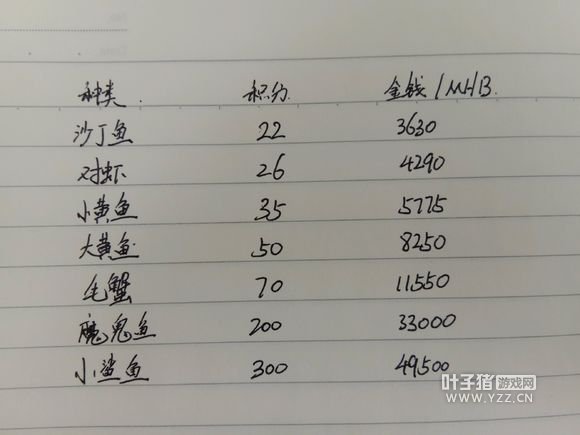 种类 积分 金钱/MHB
沙丁鱼 22 3630
对虾 26 4290
小黄鱼 35 5775
大黄鱼 50 8250
毛蟹 70 11550
魔鬼鱼 200 33000
小鲨鱼 300 49500
叶子猪游戏网
WWW.YZZ.CN